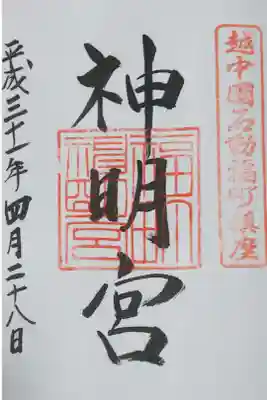 越中國石動福町鎮座
神明宮
平成三十一年四月二十八日